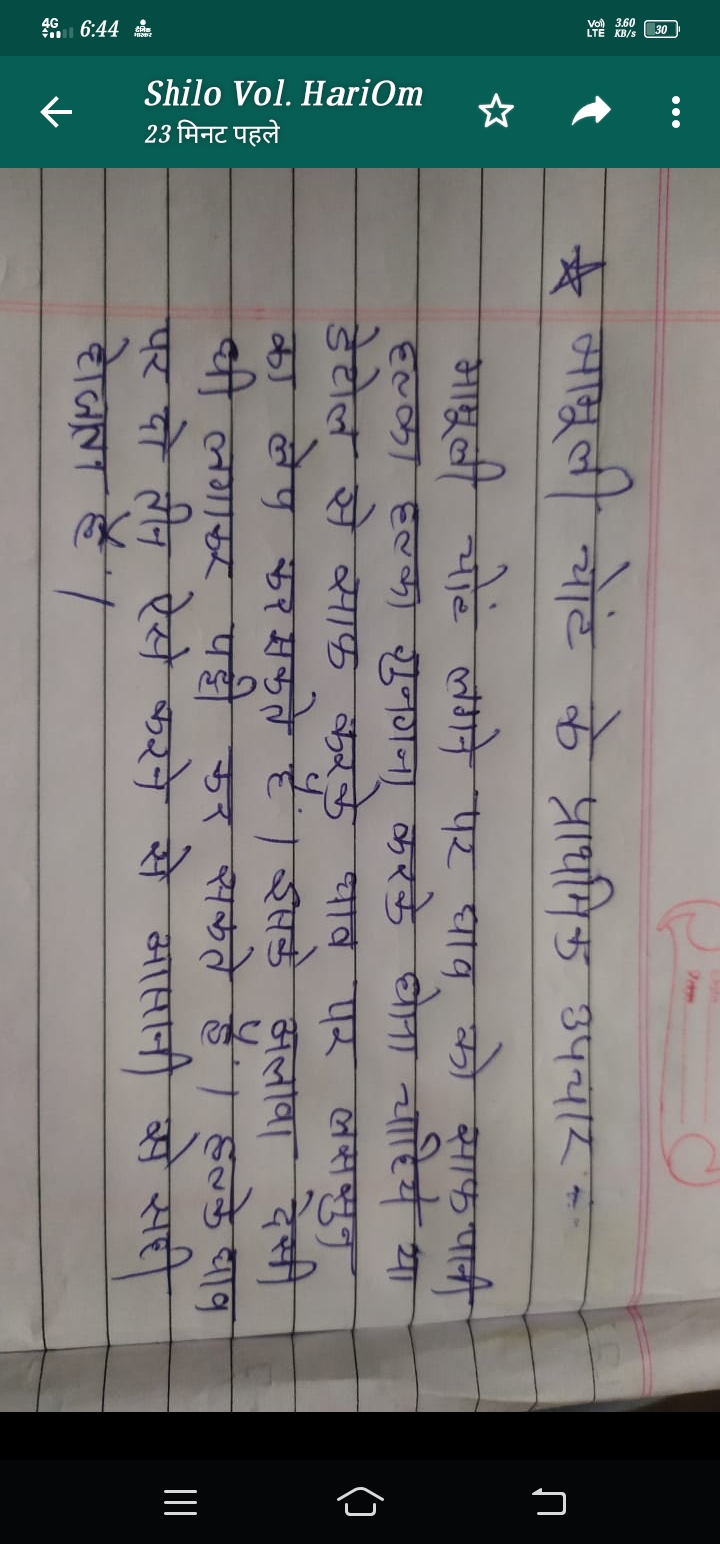 4G 6:44 Vo) LTE 3.60 KB/s 30
Shilo Vol. HariOm
23 मिनट पहले
☆ मामूली चोंट के प्राथमिक उपचार :-
मामूली चोंट लगने पर घाव को साफ पानी
हल्का हल्का गुनगुना करके धोना चाहिये या
डेटोल से साफ करके घाव पर लसुन
का लेप कर सकते हैं। इसके अलावा देसी
घी लगाकर पट्टी कर सकते हैं। हल्के घाव
पर दो तीन ऐसे करने से आसानी से सही
होजाता है।